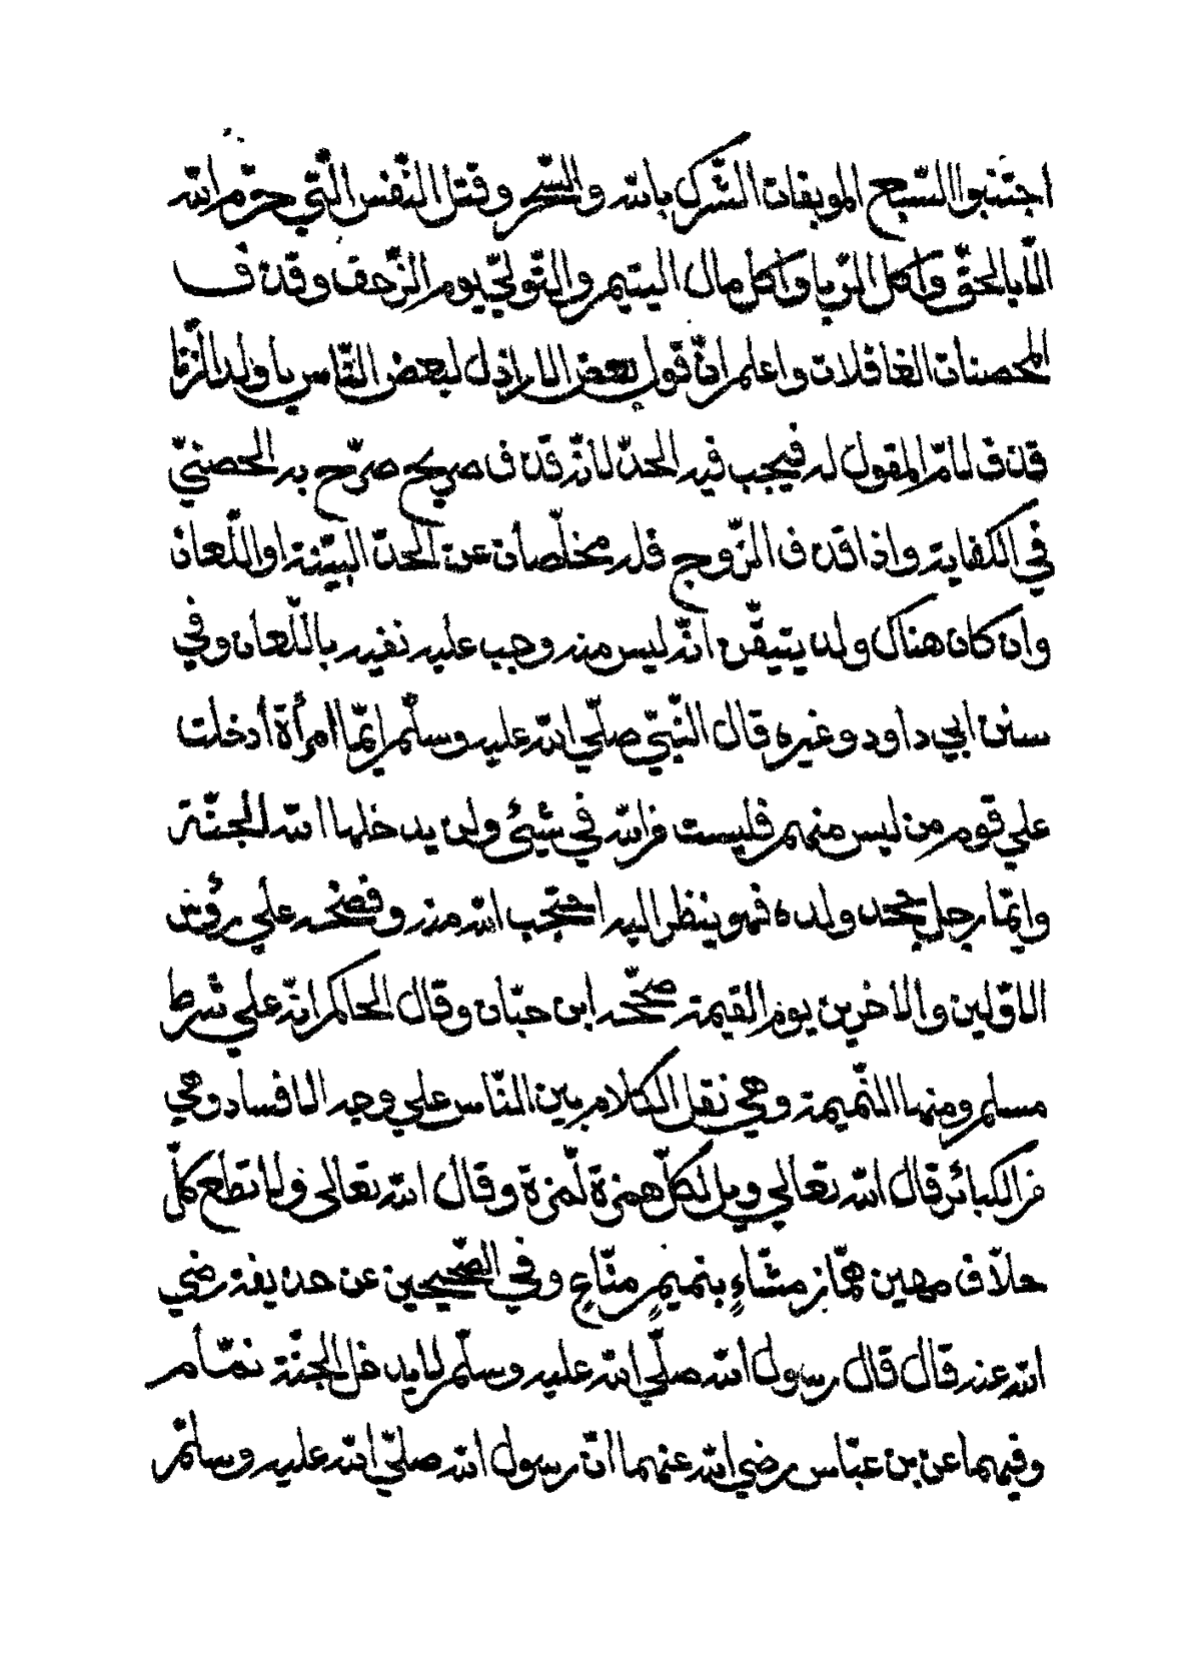 اجتنبوا السّبع الموبقات الشّرك بالله والسّحر وقتل النّفس الّتي حرّم الله
الّا بالحقّ وأكل الرّبا وأكل مال اليتيم والتّولّي يوم الزّحف وقذف
المحصنات الغافلات واعلم انّ قول بعض الاراذل لبعض النّاس يا ولد الزّنا
قذف لامّ المقول له فيجب فيه الحدّ لانّه قذف صريح صرّح به الحصنيّ
في الكفاية واذا قذف الزّوج فله مخلّصان عن الحدّ البيّنة او اللّعان
وان كان هناك ولد يتيقّن انّه ليس منه وجب عليه نفيه باللّعان وفي
سنن ابي داود وغيره قال النّبيّ صلّي الله عليه وسلّم ايّما امرأة أدخلت
علي قوم من ليس منهم فليست من الله في شيئ ولن يدخلها الله الجنّة
وايّما رجل جحد ولده وهو ينظر اليه احتجب الله منه وفضحه علي رؤس
الاوّلين والاخرين يوم القيمة صحّحه ابن حبّان وقال الحاكم انّه علي شرط
مسلم ومنها النّميمة وهي نقل الكلام بين النّاس علي وجه الافساد وهي
من الكبائر قال الله تعالي ويل لكلّ همزة لّمزة وقال الله تعالي ولا تطع كلّ
حلّاف مهين همّاز مشّاءٍ بنميمٍ منّاعٍ وفي الصّحيحين عن حذيفة رضي
الله عنه قال قال رسول الله صلّي الله عليه وسلّم لا يدخل الجنّة نمّام
وفيهما عن بن عبّاس رضي الله عنهما انّ رسول الله صلّي الله عليه وسلّم